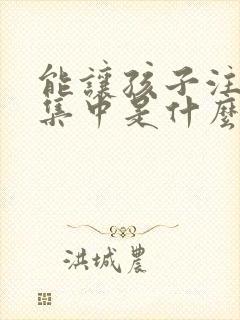 能讓孩子注
集中是什麼
洪城農